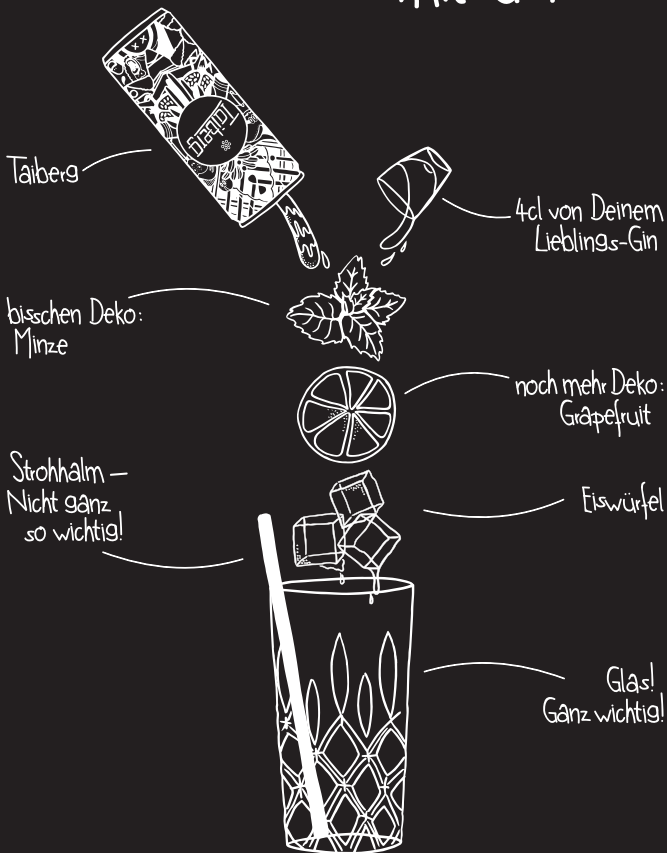 Taiberg
4cl von Deinem
Lieblings-Gin
bisschen Deko:
Minze
noch mehr Deko:
Grapefruit
Strohhalm –
Nicht ganz
so wichtig!
Eiswürfel
Glas!
Ganz wichtig!